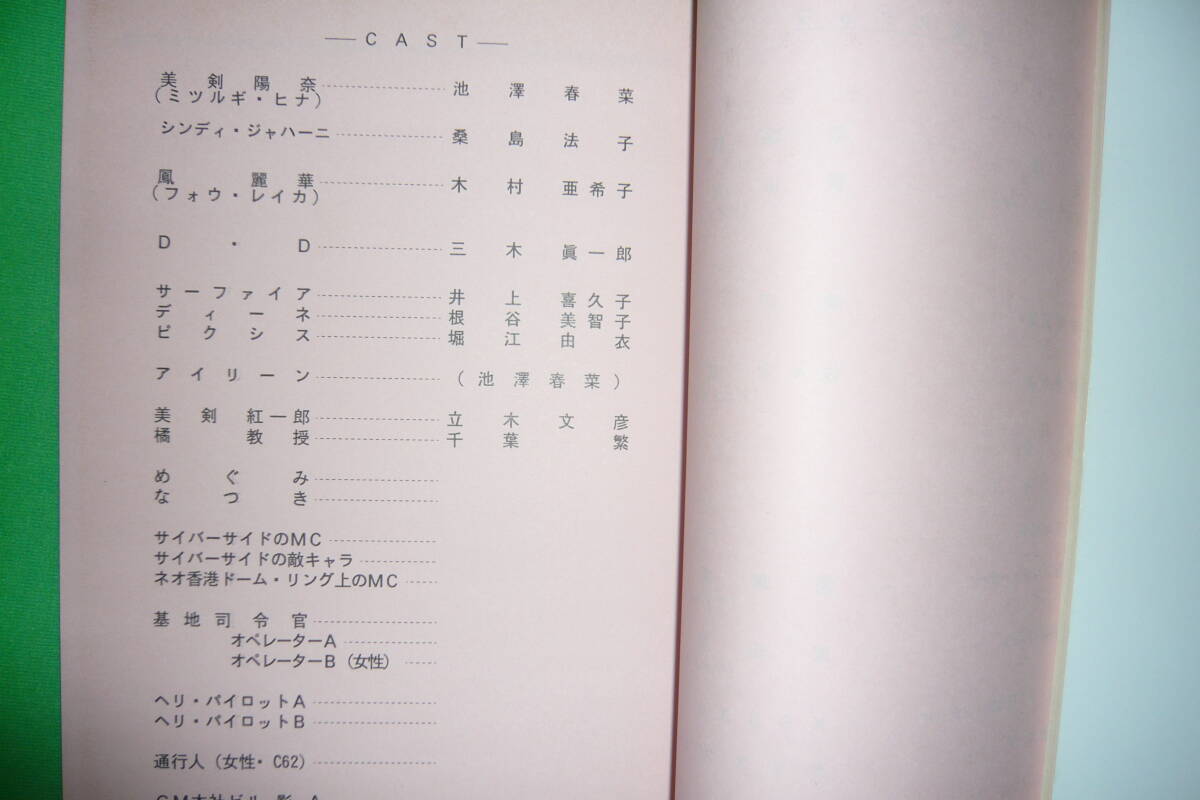 CAST
美剣陽奈 池澤春菜
(ミツルギ・ヒナ)
シンディ・ジャハーニ 桑島法子
鳳麗華 木村亜希子
(フォウ・レイカ)
D・D 三木眞一郎
サーファイア 井上喜久子
ディーネ 根谷美智子
ピクシス 堀江由衣
アイリーン (池澤春菜)
美剣紅一郎 立木文彦
橘教授 千葉繁
めぐみ
なつき
サイバーサイドのMC
サイバーサイドの敵キャラ
ネオ香港ドーム・リング上のMC
基地司令官
オペレーターA
オペレーターB(女性)
ヘリ・パイロットA
ヘリ・パイロットB
通行人(女性・C62)